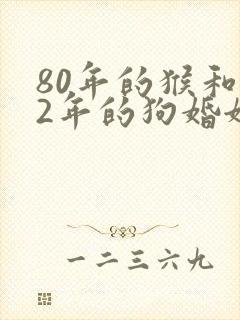 80年的猴和
2年的狗婚
一二三六九